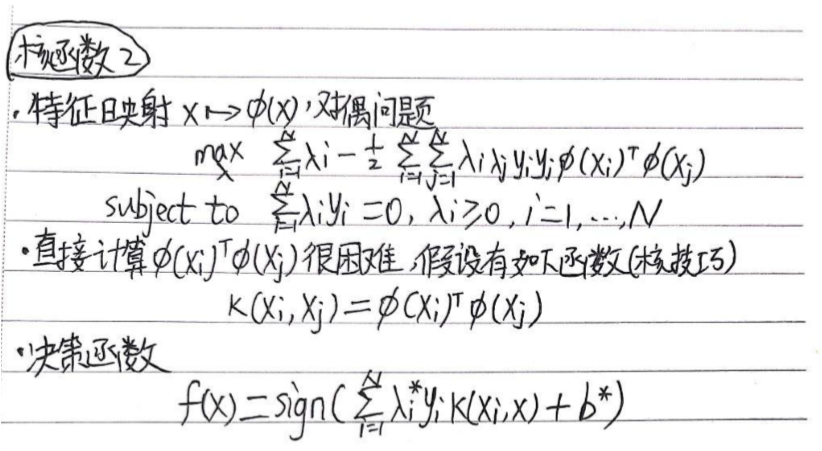 核函数2
·特征映射 x↦φ(x),对偶问题
max_λ ∑_{i=1}^{N} λi − 1/2 ∑_{i=1}^{N} ∑_{j=1}^{N} λiλjyiyjφ(xi)ᵀφ(xj)
subject to ∑_{i=1}^{N} λiyi = 0, λi ≥ 0, i=1,...,N
·直接计算φ(xi)ᵀφ(xj)很困难,假设有如下函数(核技巧)
K(xi, xj) = φ(xi)ᵀφ(xj)
·决策函数
f(x) = sign(∑_{i=1}^{N} λi*yiK(xi,x) + b*)